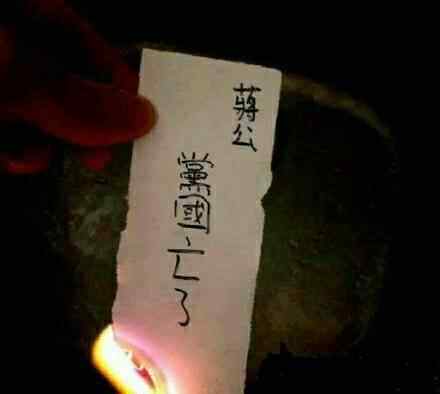 蔣公
黨國亡了